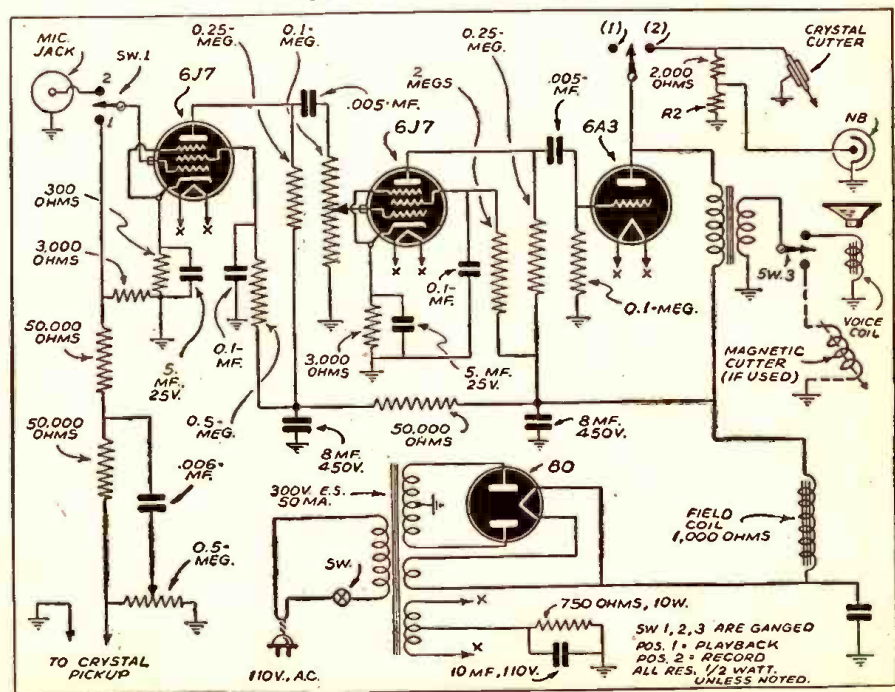 MIC. JACK
2
SW.1
1
6J7
0.25-MEG.
0.1-MEG.
.005-MF.
2 MEGS
6J7
0.25-MEG.
.005-MF.
6A3
(1)
(2)
2,000 OHMS
R2
CRYSTAL CUTTER
NB
300 OHMS
3,000 OHMS
50,000 OHMS
50,000 OHMS
5. MF. 25V.
0.1-MF.
0.5-MEG.
X X
3,000 OHMS
5. MF. 25V.
0.1-MF.
X X
X X
0.1-MEG.
SW.3
VOICE COIL
MAGNETIC CUTTER (IF USED)
8 MF. 450V.
50,000 OHMS
8 MF. 450V.
.006-MF.
0.5-MEG.
TO CRYSTAL PICKUP
300V. E.S. 50 MA.
80
SW.
110V., A.C.
X
X
750 OHMS, 10W.
10 MF., 110V.
FIELD COIL 1,000 OHMS
SW 1, 2, 3 ARE GANGED
POS. 1 = PLAYBACK
POS. 2 = RECORD
ALL RES. 1/2 WATT.
UNLESS NOTED.